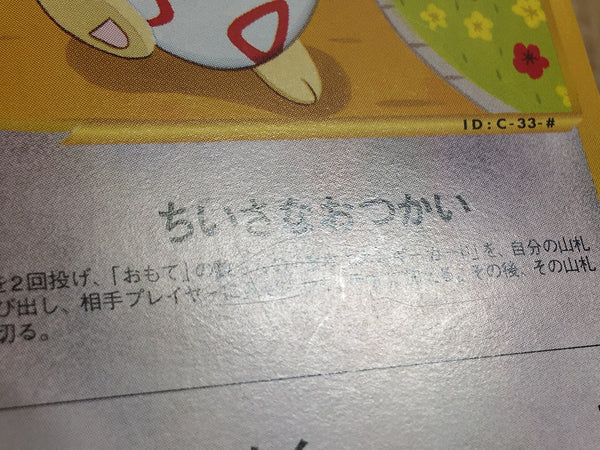 ID:C-33-#
ちいさなおつかい
を2回投げ、「おもて」の数 カード」を、自分の山札
び出し、相手プレイヤーに る。その後、その山札
切る。